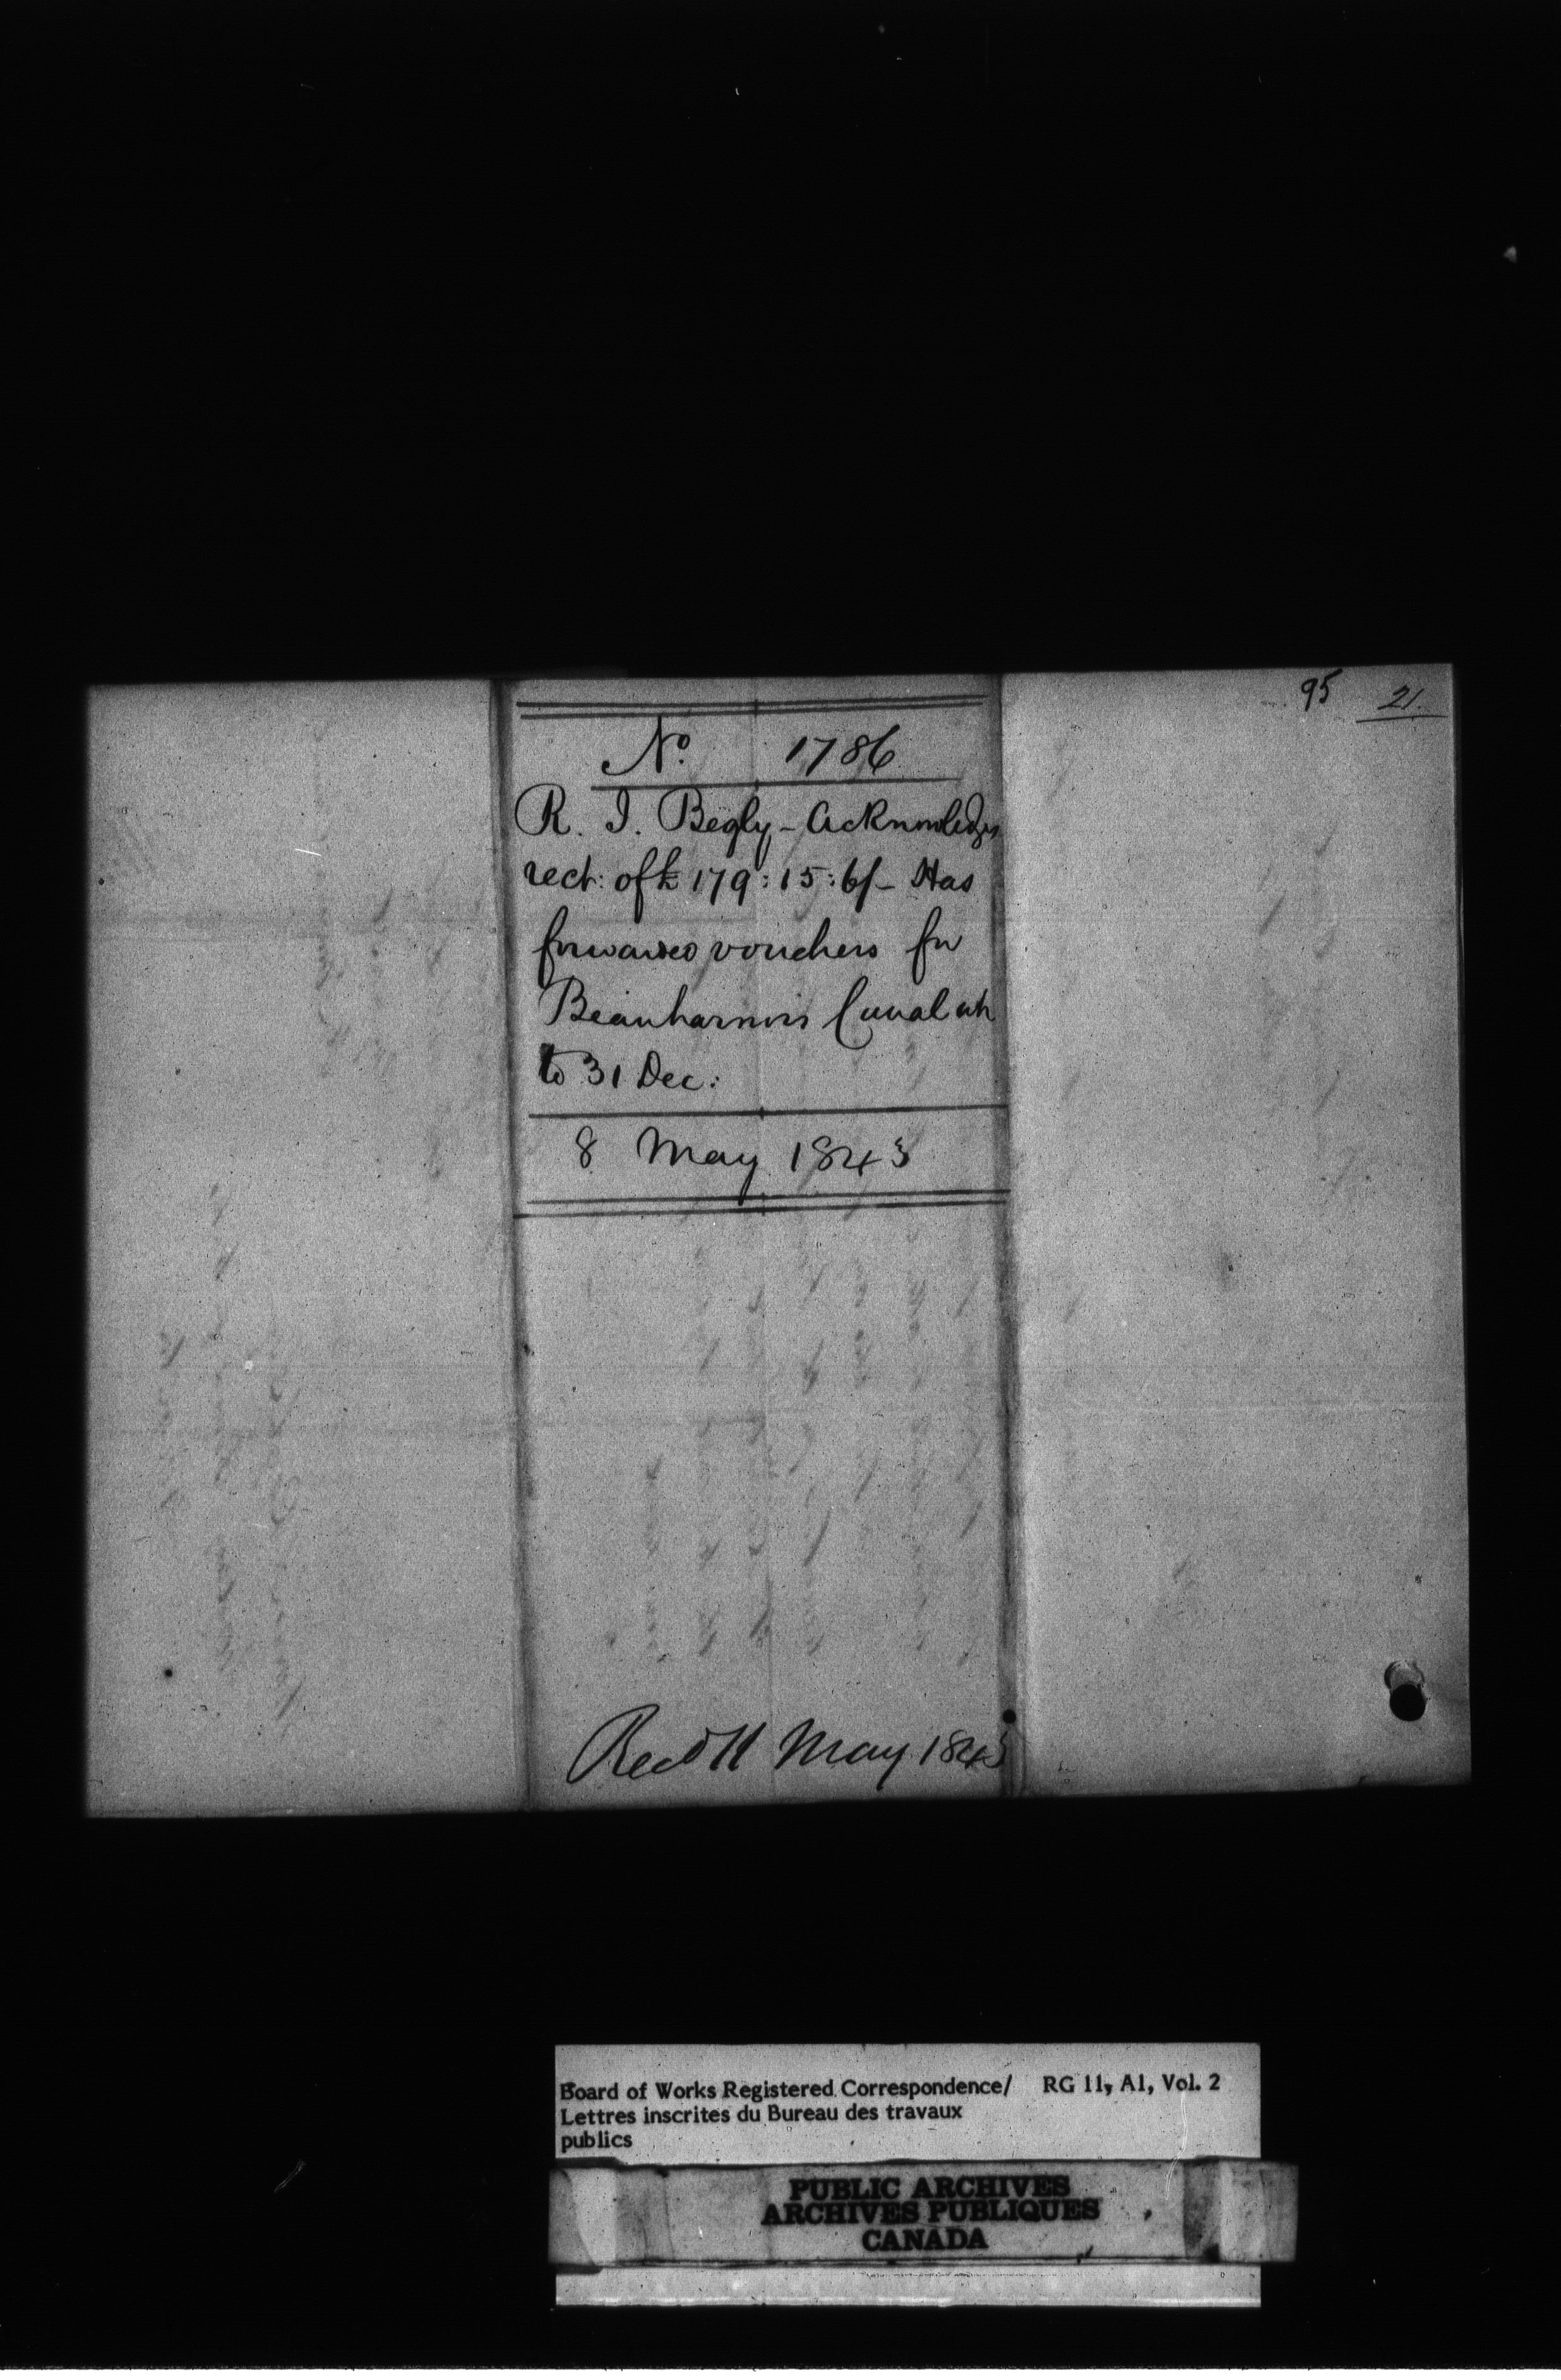 95 21.
No. 1786
R. I. Begly - Acknowledges
rect: of £179:15:6/- Has
forwarded vouchers for
Beauharnois Canal
to 31 Dec:
8 May 1843
Recd 11 May 1843
Board of Works Registered Correspondence/ RG 11, A1, Vol. 2
Lettres inscrites du Bureau des travaux
publics
PUBLIC ARCHIVES
ARCHIVES PUBLIQUES
CANADA